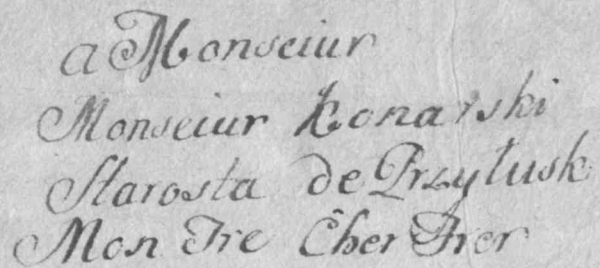 a Monseiur
Monseiur Konarski
Starosta de Przyłusk
Mon Tre Cher Frer